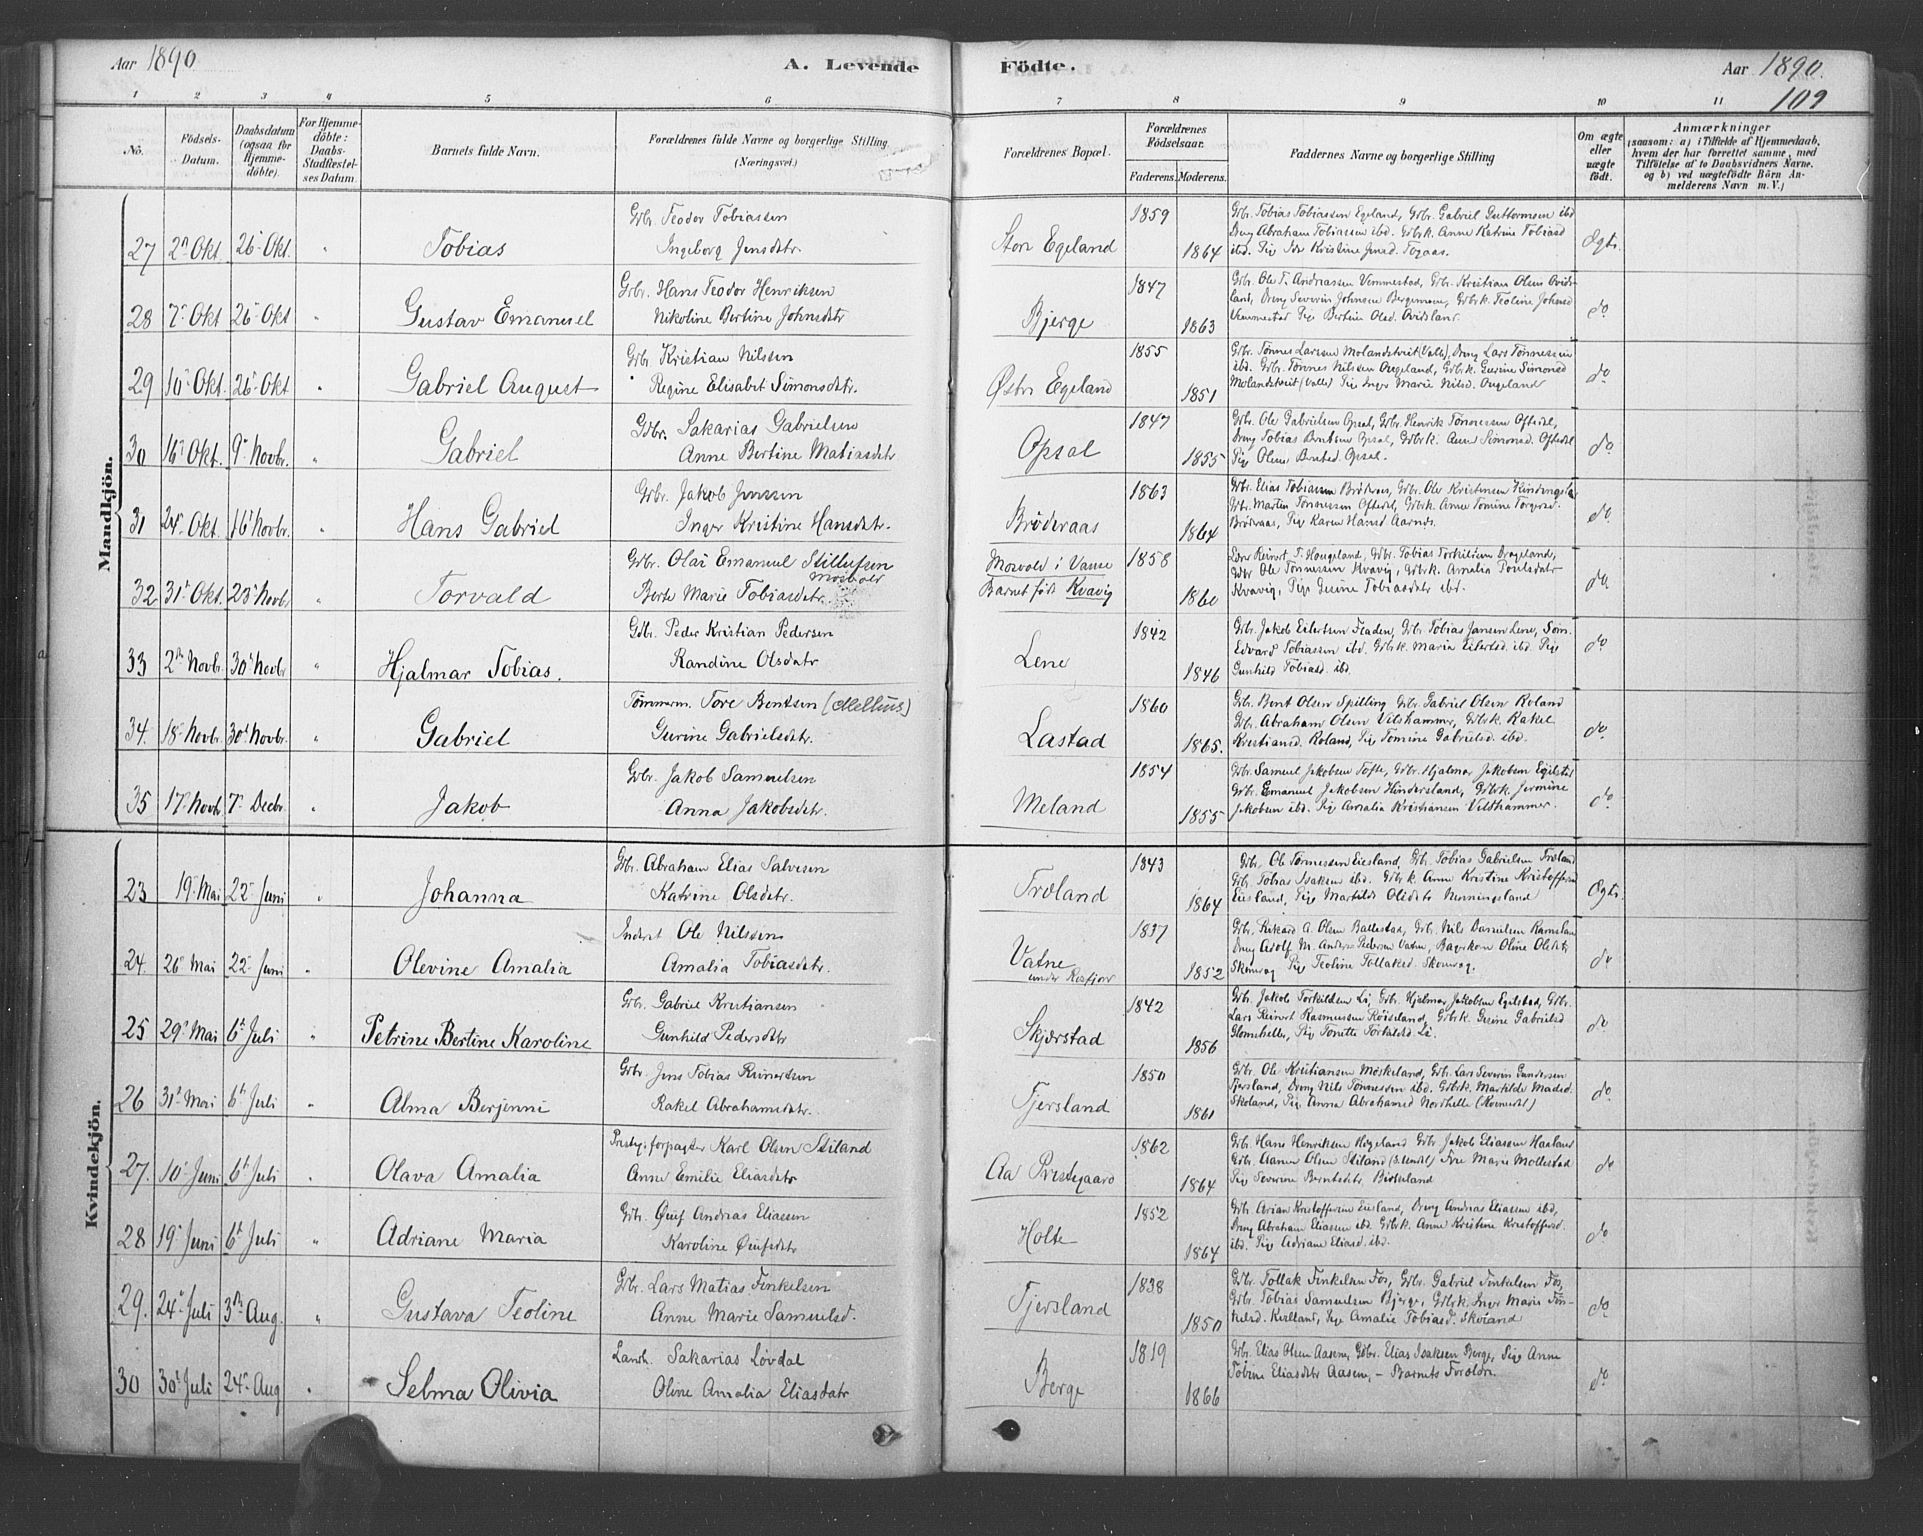 Aar 1890
A. Levende
Födte.
Aar 1890.
109
1 2 3 4 5 6 7 8 9 10 11
No.
Födsels-
Datum.
Daabsdatum
(ogsaa for
Hjemme-
döbte).
For Hjemme-
döbte:
Daabs-
Stadfæstel-
ses Datum.
Barnets fulde Navn.
Forældrenes fulde Navne og borgerlige Stilling
(Næringsvei.)
Forældrenes Bopæl.
Forældrenes
Födselsaar.
Faderens. Moderens.
Faddernes Navne og borgerlige Stilling
Om ægte
eller
uægte
födt.
Anmærkninger
(saasom: a) i Tilfælde af Hjemmedaab,
hvem der har forrettet samme, med
Tilföielse af to Daabsvidners Navne.
og b) ved uægtefödte Börn An-
melderens Navn m. V.)
Mandkjön.
27 2n Okt. 26 Okt. Tobias
Gbr. Teodor Tobiassen
Ingeborg Jensdtr.
Stor Egeland 1859 1864
Gbr. Tobias Tobiassen Egeland, Gbr. Gabriel Guttormsen ibd
Dreng Abraham Tobiassen ibd. Gbrk. Anne Katrine Tobiasd
ibd. Pige Kristine Jensd.
Ægte.
28 7 Okt 26 Okt Gustav Emanuel
Gbr. Hans Teodor Henriksen
Nikoline Bertine Johnsdtr
Bjerge 1847 1863
Gbr. Ole T. Andreassen Vemmestad, Gbr. Kristian Olsen Ovids-
land, Dreng Severin Johnsen Bergemoen, Gbrk Teoline Johnsd
Vemmestad Pige Bertine Olsd. Ovidsland.
do
29 10 Okt. 26 Okt Gabriel August
Gbr. Kristian Nilssen
Regine Elisabet Simonsdtr.
Østre Egeland 1855 1851
Gbr. Tønnes Larssen Molandsveit (Valle), Dreng Lars Tønnessen
ibd. Gbr. Tønnes Nilsen Augeland, Gbrk Gurine Simonsd
Molandsveit (Valle) Pige Inger Marie Nilsd. Augeland
do
30 16 Okt. 9 Novbr. Gabriel
Gbr. Sakarias Gabrielsen
Anne Bertine Matiasdtr
Opsal 1847 1855
Gbr. Ole Gabrielsen Opsal, Gbr. Henrik Tønnessen Oftedal,
Dreng Tobias Bentsen Opsal, Gbrk. Anne Simonsd. Oftedal
Pige Oline Bentsd. Opsal.
do
31 24 Okt. 16 Novbr. Hans Gabriel
Gbr. Jakob Jenssen
Inger Kristine Hansdtr.
Brøderaas 1863 1864
Gbr. Elias Tobiassen Brøderaas, Gbr. Ole Kristensen
Gbr. Martin Tønnessen Oftedal, Gbrk Anne Tomine Torgersd.
Brøderaas, Pige Karen Hansd Aarnes.
do
32 31 Okt. 23 Novbr Torvald
Gbr. Olai Emanuel Stillufsen
Mosvold
Berte Marie Tobiasdtr.
Mosvold i Vanse
Barnet født Kvavig
1858 1860
Reinert T. Haugeland, Gbr. Tobias Torkildsen Drageland,
Gbr Ole Tønnessen Kvavig, Gbrk. Amalia Poulsdatr
Kvavig, Pige Gusine Tobiasdatr ibd.
do
33 2 Novbr. 30 Novbr Hjalmar Tobias.
Gbr. Peder Kristian Pedersen
Randine Olsdatr
Lene 1842 1846
Gbr. Jakob Eilertsen Fladen, Gbr Tobias Jansen Lene, Søm.
Edvard Tobiassen ibd. Gbrk. Maria Eilertsd. ibd Pige
Gunhild Tobiasd. ibd.
do
34. 18 Novbr. 30 Novbr. Gabriel
Tømmerm. Tore Bentsen (Mellius)
Gurine Gabrielsdtr.
Lastad 1860 1865.
Gbr. Bent Olsen Spilling Gbr. Gabriel Olsen Roland
Gbr. Abraham Olsen Vilshammer, Gbrk. Rakel
Kristiansd. Roland, Pige Tomine Gabrielsd. ibd.
do
35 17 Novb. 7 Decbr Jakob
Gbr. Jakob Samuelsen
Anna Jakobsdtr.
Meland 1854 1855
Gbr. Samuel Jakobsen Tofte, Gbr. Hjalmar Jakobsen Egilstad
Gbr. Emanuel Jakobsen Hindersland, Gbrk Jermine
Jakobsen ibd. Pige Amalia Kristiansen Vilshammer.
do
Kvindekjön.
23 19 Mai 22 Juni Johanna
Gbr. Abraham Elias Salvesen
Katrine Olsdatr.
Træland 1843 1864
Gbr. Ole Tønnessen Eiesland, Gbr Tobias Gabrielsen Træland
Gbr. Tobias Isaksen ibd. Gbrk. Anne Kristine Kristoffersd
Eiesland, Pige Martilde Olsdatr
Ægte.
24. 26 Mai 22 Juni Olevine Amalia
Inderst Ole Nilssen
Amalia Tobiasdatr.
Vatne
under Rosfjord
1837 1852
Gbr. Rikard A. Olsen Ballestad, Gbr. Nils Danielsen
Dreng Adolf M. Anders Pedersen Vatne, Bagerkone Oline Olsdtr
Skomrag Pige Teoline Tollaksd. Skomrag.
do
25 29 Mai 6 Juli Petrine Bertine Karoline
Gbr. Gabriel Kristiansen
Gunhild Pedersdtr
Skjærstad 1842 1856
Gbr. Jakob Torkildsen Li, Gbr. Hjalmar Jakobsen Egilstad, Gbr.
Lars Reinert Rasmussen Røiseland, Gbrk. Gusine Gabrielsd
Glomehelle, Pige Tonette Torkildsd Li.
do
26 31 Mai 6 Juli Alma Berjenni
Gbr. Jens Tobias Reinertsen
Rakel Abrahamsdatr.
Tjersland 1850 1861
Gbr. Ole Kristiansen Møskeland, Gbr. Lars Severin Gundersen
Tjersland, Dreng Nils Tønnessen ibd. Gbrk. Martilde Madsd.
Skoland, Pige Anna Abrahamsd Nordhelle
do
27. 10 Juni 6 Juli Olava Amalia
Prestg.forpagter Karl Olsen Stiland
Anne Emilie Eliasdatr
Aa Prestegaard 1862 1864
Gbr. Hans Henriksen Høgeland Gbr. Jakob Eliassen
Gbr. Aanen Olsen Stiland Marie Møllestad
Pige Severine Berntsdtr Birkeland
do
28 19 Juni 6 Juli Adriane Maria
Gbr. Øuf Andreas Eliassen
Karoline Øufsdtr
Holte 1852 1864
Gbr. Arian Kristoffersen Eiesland, Dreng Andreas Eliassen ibd,
Dreng Abraham Eliassen ibd. Gbrk. Anne Kristine Kristoffersd.
ibd. Pige Adriane Eliasd. ibd.
do
29. 24 Juli 3 Aug. Gustava Teoline
Gbr. Lars Matias Finkelsen
Anne Marie Samuelsd.
Tjersland 1838 1850
Gbr. Tollak Finkelsen Fos, Gbr. Gabriel Finkelsen Fos,
Gbr. Tobias Samuelsen Bjerge, Gbrk. Inger Marie Fin-
kelsd. Kvelland, Pige Amalie Tobiasd. Skeiand
do
30 30 Juli 24 Aug Selma Olivia
Landh. Sakarias Løvdal
Oline Amalia Eliasdatr
Berge 1819 1866
Gbr. Elias Olsen Aasen, Gbr. Elias Isaksen Berge, Pige Anne
Tobine Eliasdtr Aasen, – Barnets Forældre.
do